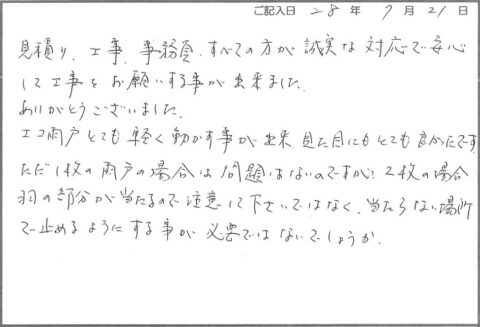 ご記入日 28年 7月 21日
見積り、工事、事務員、すべての方が誠実な対応で安心
して工事をお願いする事が出来ました。
ありがとうございました。
エコ雨戸とても軽く動かす事が出来見た目にもとても良かったです。
ただ1枚の雨戸の場合は問題はないのですが、2枚の場合
羽の部分が当たるので注意して下さいではなく、当たらない場所
で止めるようにする事が必要ではないでしょうか。